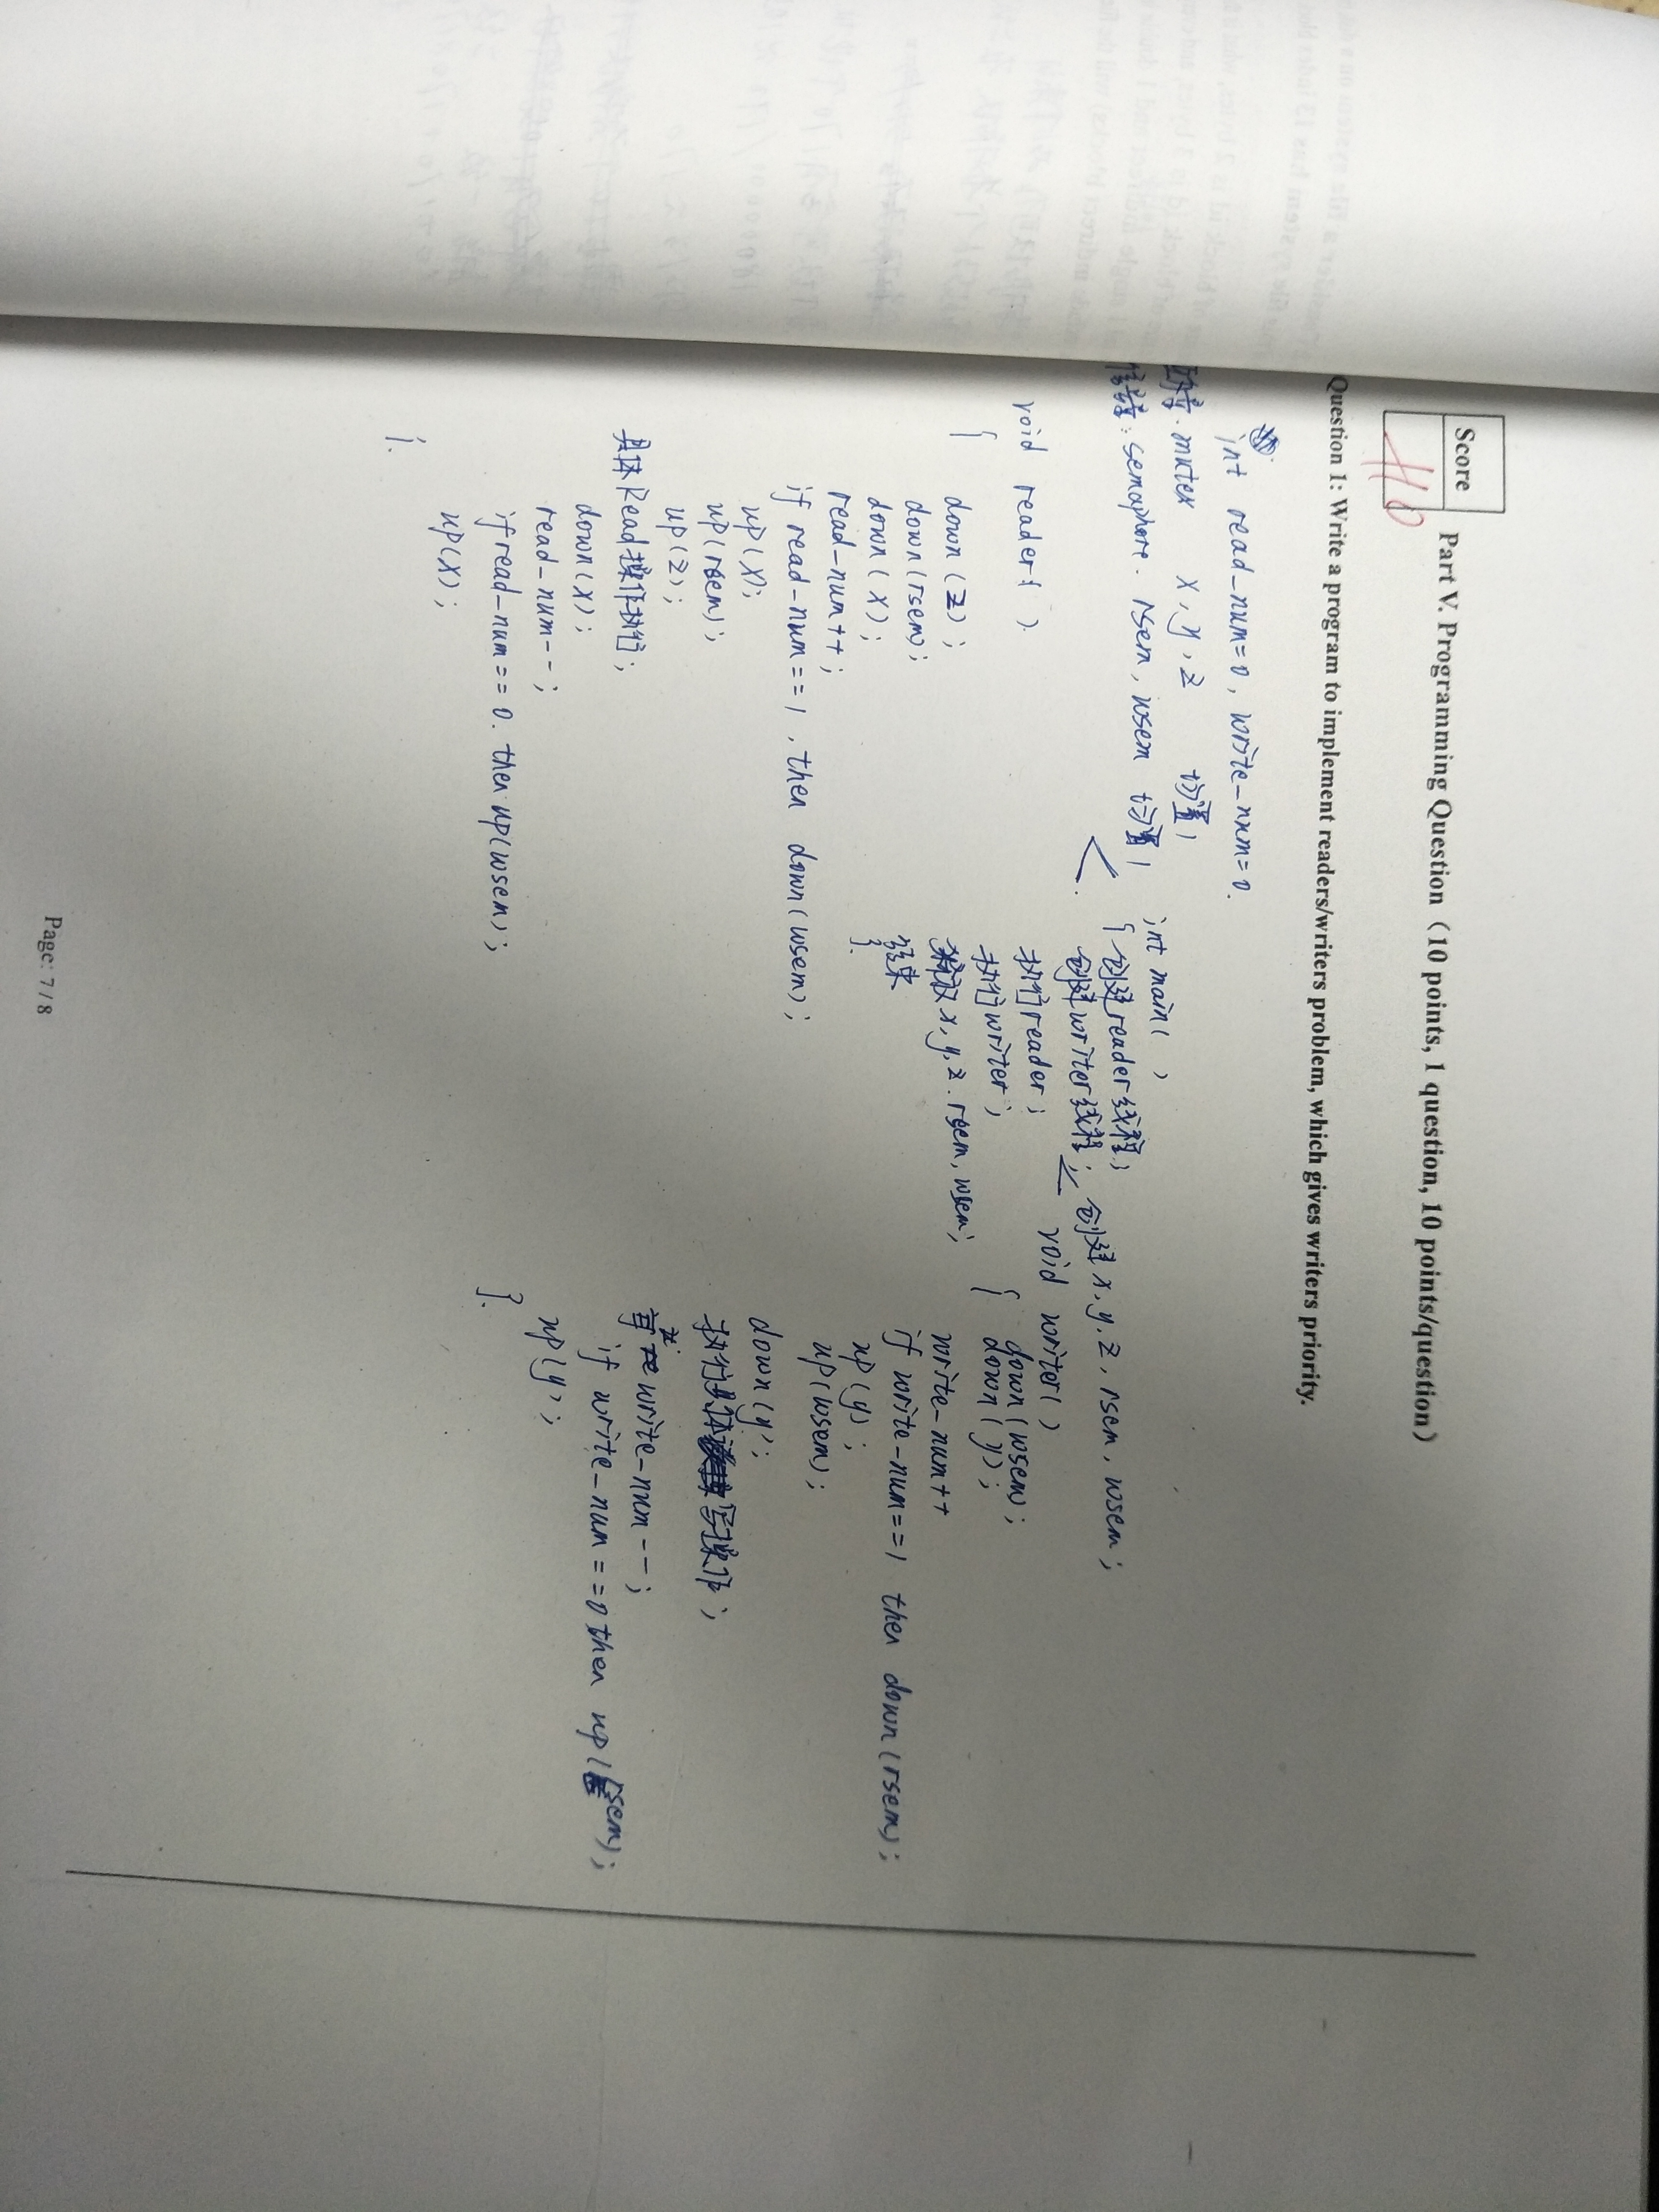 Score
+10
Part V. Programming Question（10 points, 1 question, 10 points/question）
Question 1: Write a program to implement readers/writers problem, which gives writers priority.
int read_num=0, write_num=0.
mutex x, y, z 均置1
信号量: semaphore. rsem, wsem 均置1
void reader( )
{
down(z);
down(rsem);
down(x);
read_num++;
if read_num==1, then down(wsem);
up(x);
up(rsem);
up(z);
具体Read操作执行;
down(x);
read_num--;
if read_num==0. then up(wsem);
up(x);
}.
int main( )
{ 创建reader线程;
创建writer线程; < 创建x, y, z, rsem, wsem;
执行reader;
执行writer;
释放x, y, z. rsem, wsem;
结束
}.
void writer( )
{ down(wsem);
down(y);
write_num++
if write_num==1 then down(rsem);
up(y);
up(wsem);
down(y);
执行具体写操作;
write_num--;
if write_num==0 then up(rsem);
up(y);
}.
Page: 7/8